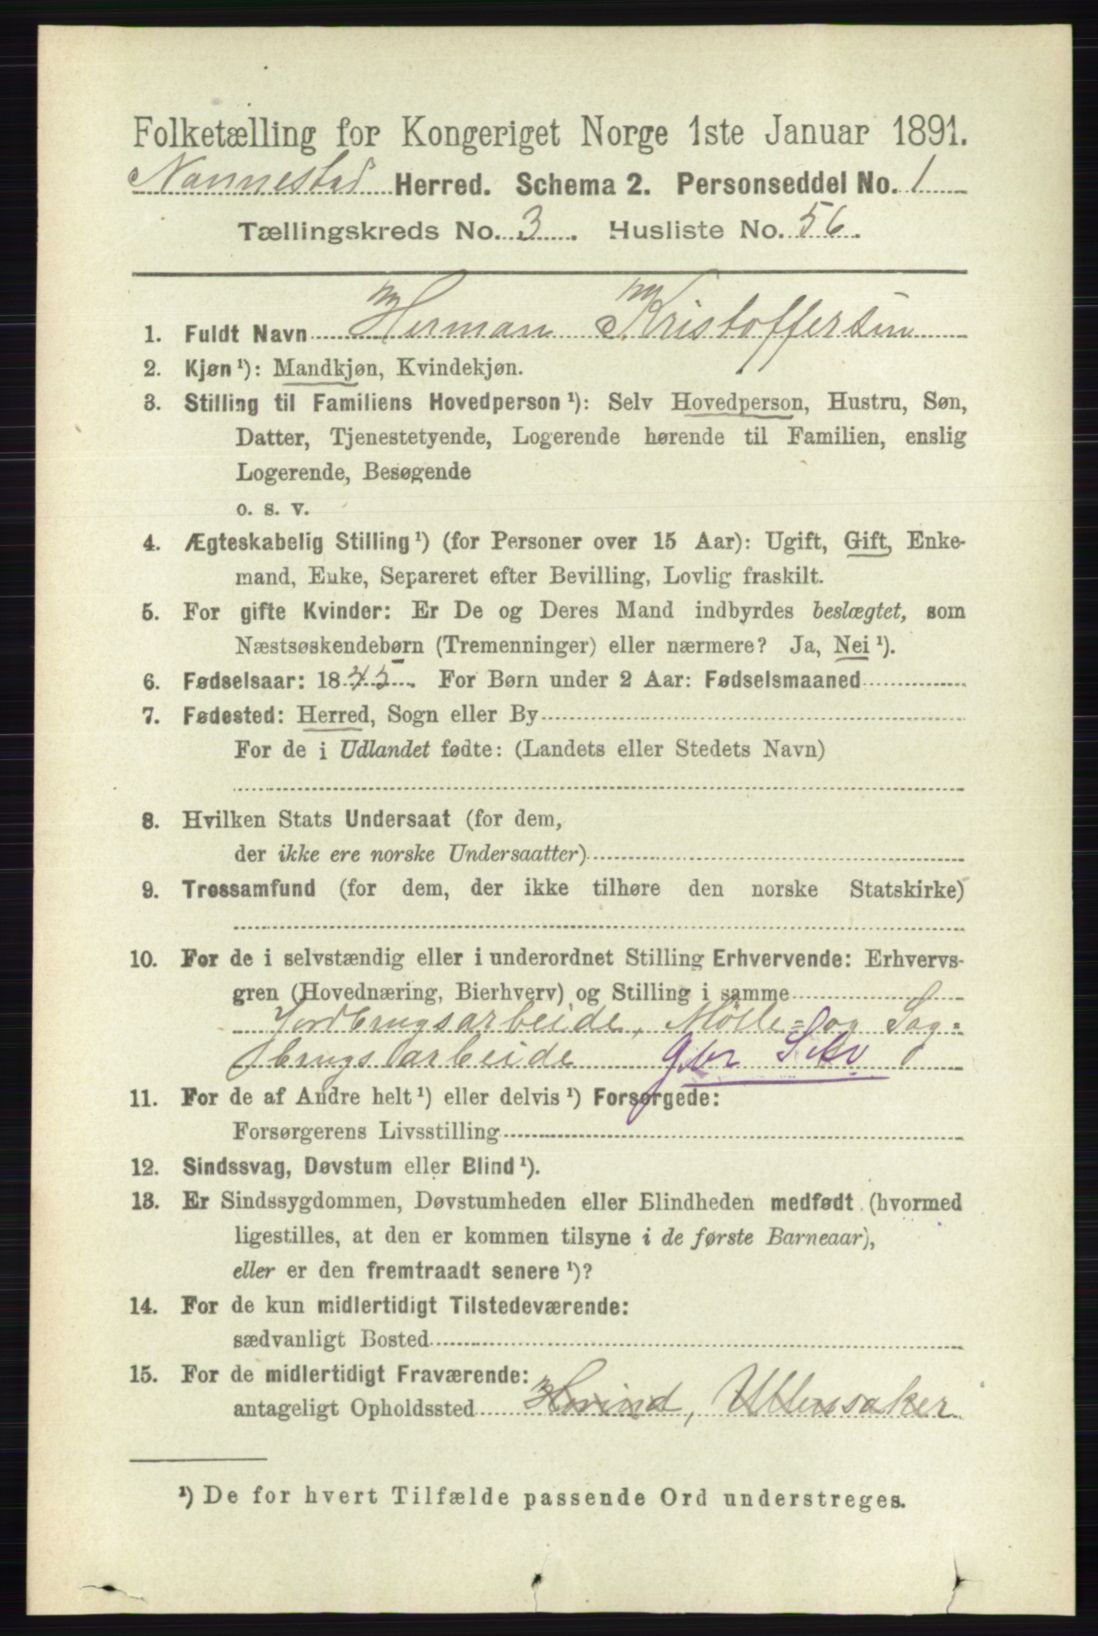 Folketælling for Kongeriget Norge 1ste Januar 1891.
Nannestad Herred. Schema 2. Personseddel No. 1
Tællingskreds No. 3. Husliste No. 56.
1. Fuldt Navn Herman Kristoffersen
2. Kjøn ¹): Mandkjøn, Kvindekjøn.
3. Stilling til Familiens Hovedperson ¹): Selv Hovedperson, Hustru, Søn,
Datter, Tjenestetyende, Logerende hørende til Familien, enslig
Logerende, Besøgende
o. s. v.
4. Ægteskabelig Stilling ¹) (for Personer over 15 Aar): Ugift, Gift, Enke-
mand, Enke, Separeret efter Bevilling, Lovlig fraskilt.
5. For gifte Kvinder: Er De og Deres Mand indbyrdes beslægtet, som
Næstsøskendebørn (Tremenninger) eller nærmere? Ja, Nei ¹).
6. Fødselsaar: 1845. For Børn under 2 Aar: Fødselsmaaned
7. Fødested: Herred, Sogn eller By
For de i Udlandet fødte: (Landets eller Stedets Navn)
8. Hvilken Stats Undersaat (for dem,
der ikke ere norske Undersaatter)
9. Trossamfund (for dem, der ikke tilhøre den norske Statskirke)
10. For de i selvstændig eller i underordnet Stilling Erhvervende: Erhvervs-
gren (Hovednæring, Bierhverv) og Stilling i samme
Jordbrugsarbeide, Mølle= og Sag=
brugsarbeide
11. For de af Andre helt ¹) eller delvis ¹) Forsørgede:
Forsørgerens Livsstilling
12. Sindssvag, Døvstum eller Blind ¹).
13. Er Sindssygdommen, Døvstumheden eller Blindheden medfødt (hvormed
ligestilles, at den er kommen tilsyne i de første Barneaar),
eller er den fremtraadt senere ¹)?
14. For de kun midlertidigt Tilstedeværende:
sædvanligt Bosted
15. For de midlertidigt Fraværende:
antageligt Opholdssted Hovind, Ullensaker
¹) De for hvert Tilfælde passende Ord understreges.